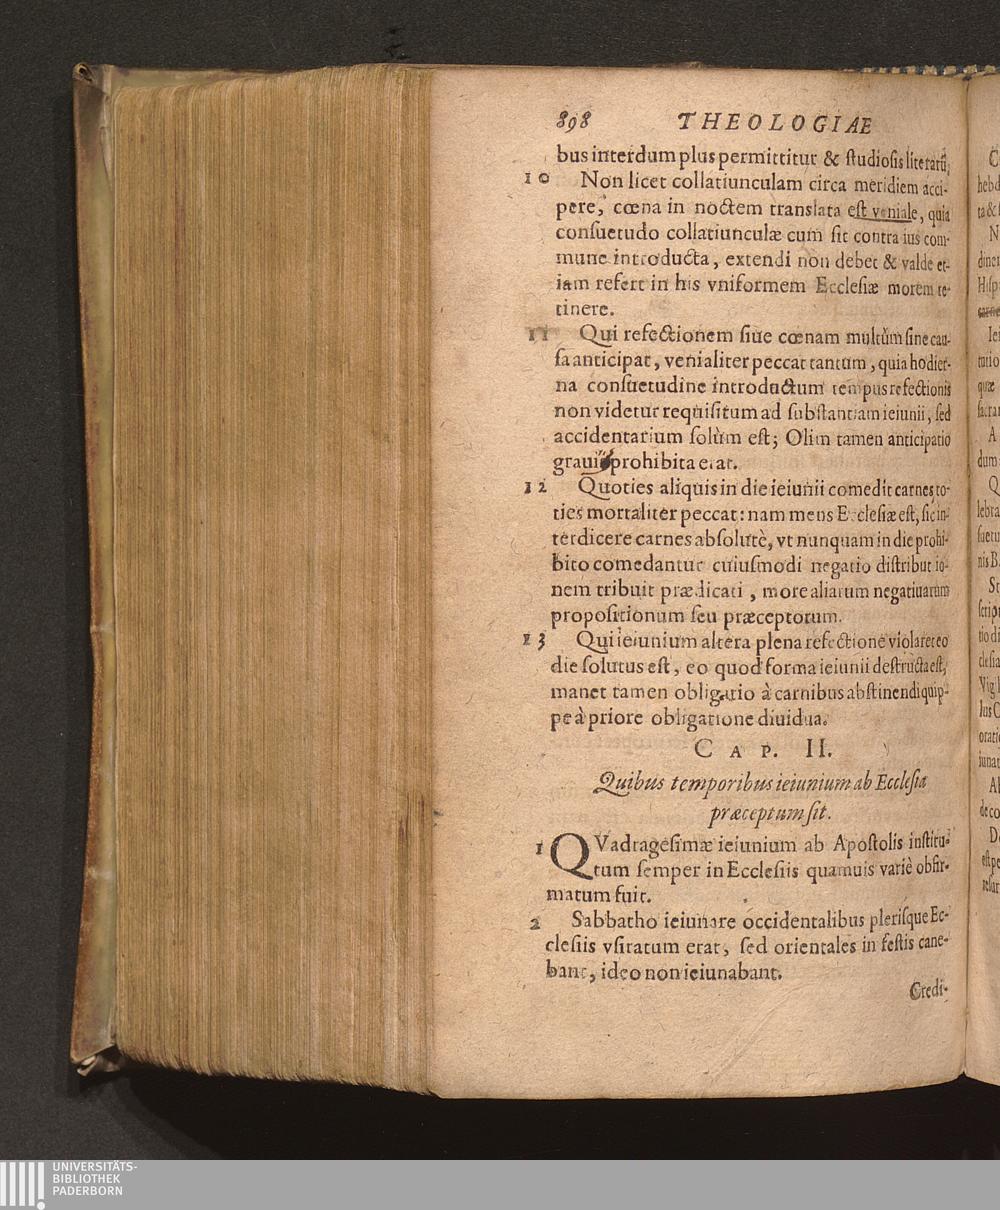 898 THEOLOGIAE
bus interdum plus permittitur & ſtudioſis literarũ,
10 Non licet collatiunculam circa meridiem acci-
pere, cœna in noctem translata eſt veniale, quia
conſuetudo collatiunculæ cum ſit contra ius com-
mune introducta, extendi non debet & valde et-
iam refert in his vniformem Eccleſiæ morem re-
tinere.
11 Qui refectionem ſiue cœnam multùm ſine cau-
ſa anticipat, venialiter peccat tantum, quia hodier-
na conſuetudine introductum tempus refectionis
non videtur requiſitum ad ſubſtantiam ieiunii, ſed
accidentarium ſolùm eſt; Olim tamen anticipatio
prohibita erat.
12 Quoties aliquis in die ieiunii comedit carnes to-
ties mortaliter peccat: nam mens Eccleſiæ eſt, ſic in-
terdicere carnes abſolutè, vt nunquam in die prohi-
bito comedantur cuiuſmodi negatio diſtributio-
nem tribuit prædicati, more aliarum negatiuarum
propoſitionum ſeu præceptorum.
13 Qui ieiunium altera plena refectione violaret eo
die ſolutus eſt, eo quod forma ieiunii deſtructa eſt,
manet tamen obligatio à carnibus abſtinendi quip-
pe à priore obligatione diuidua.
CAP. II.
Quibus temporibus ieiunium ab Eccleſia
præceptum ſit.
1 QVadrageſimæ ieiunium ab Apoſtolis inſtitu-
tum ſemper in Eccleſiis quamuis variè obfir-
matum fuit.
2 Sabbatho ieiunare occidentalibus pleriſque Ec-
cleſiis vſitatum erat, ſed orientales in feſtis cane-
bant, ideo non ieiunabant.
Credi-
UNIVERSITÄTS-
BIBLIOTHEK
PADERBORN